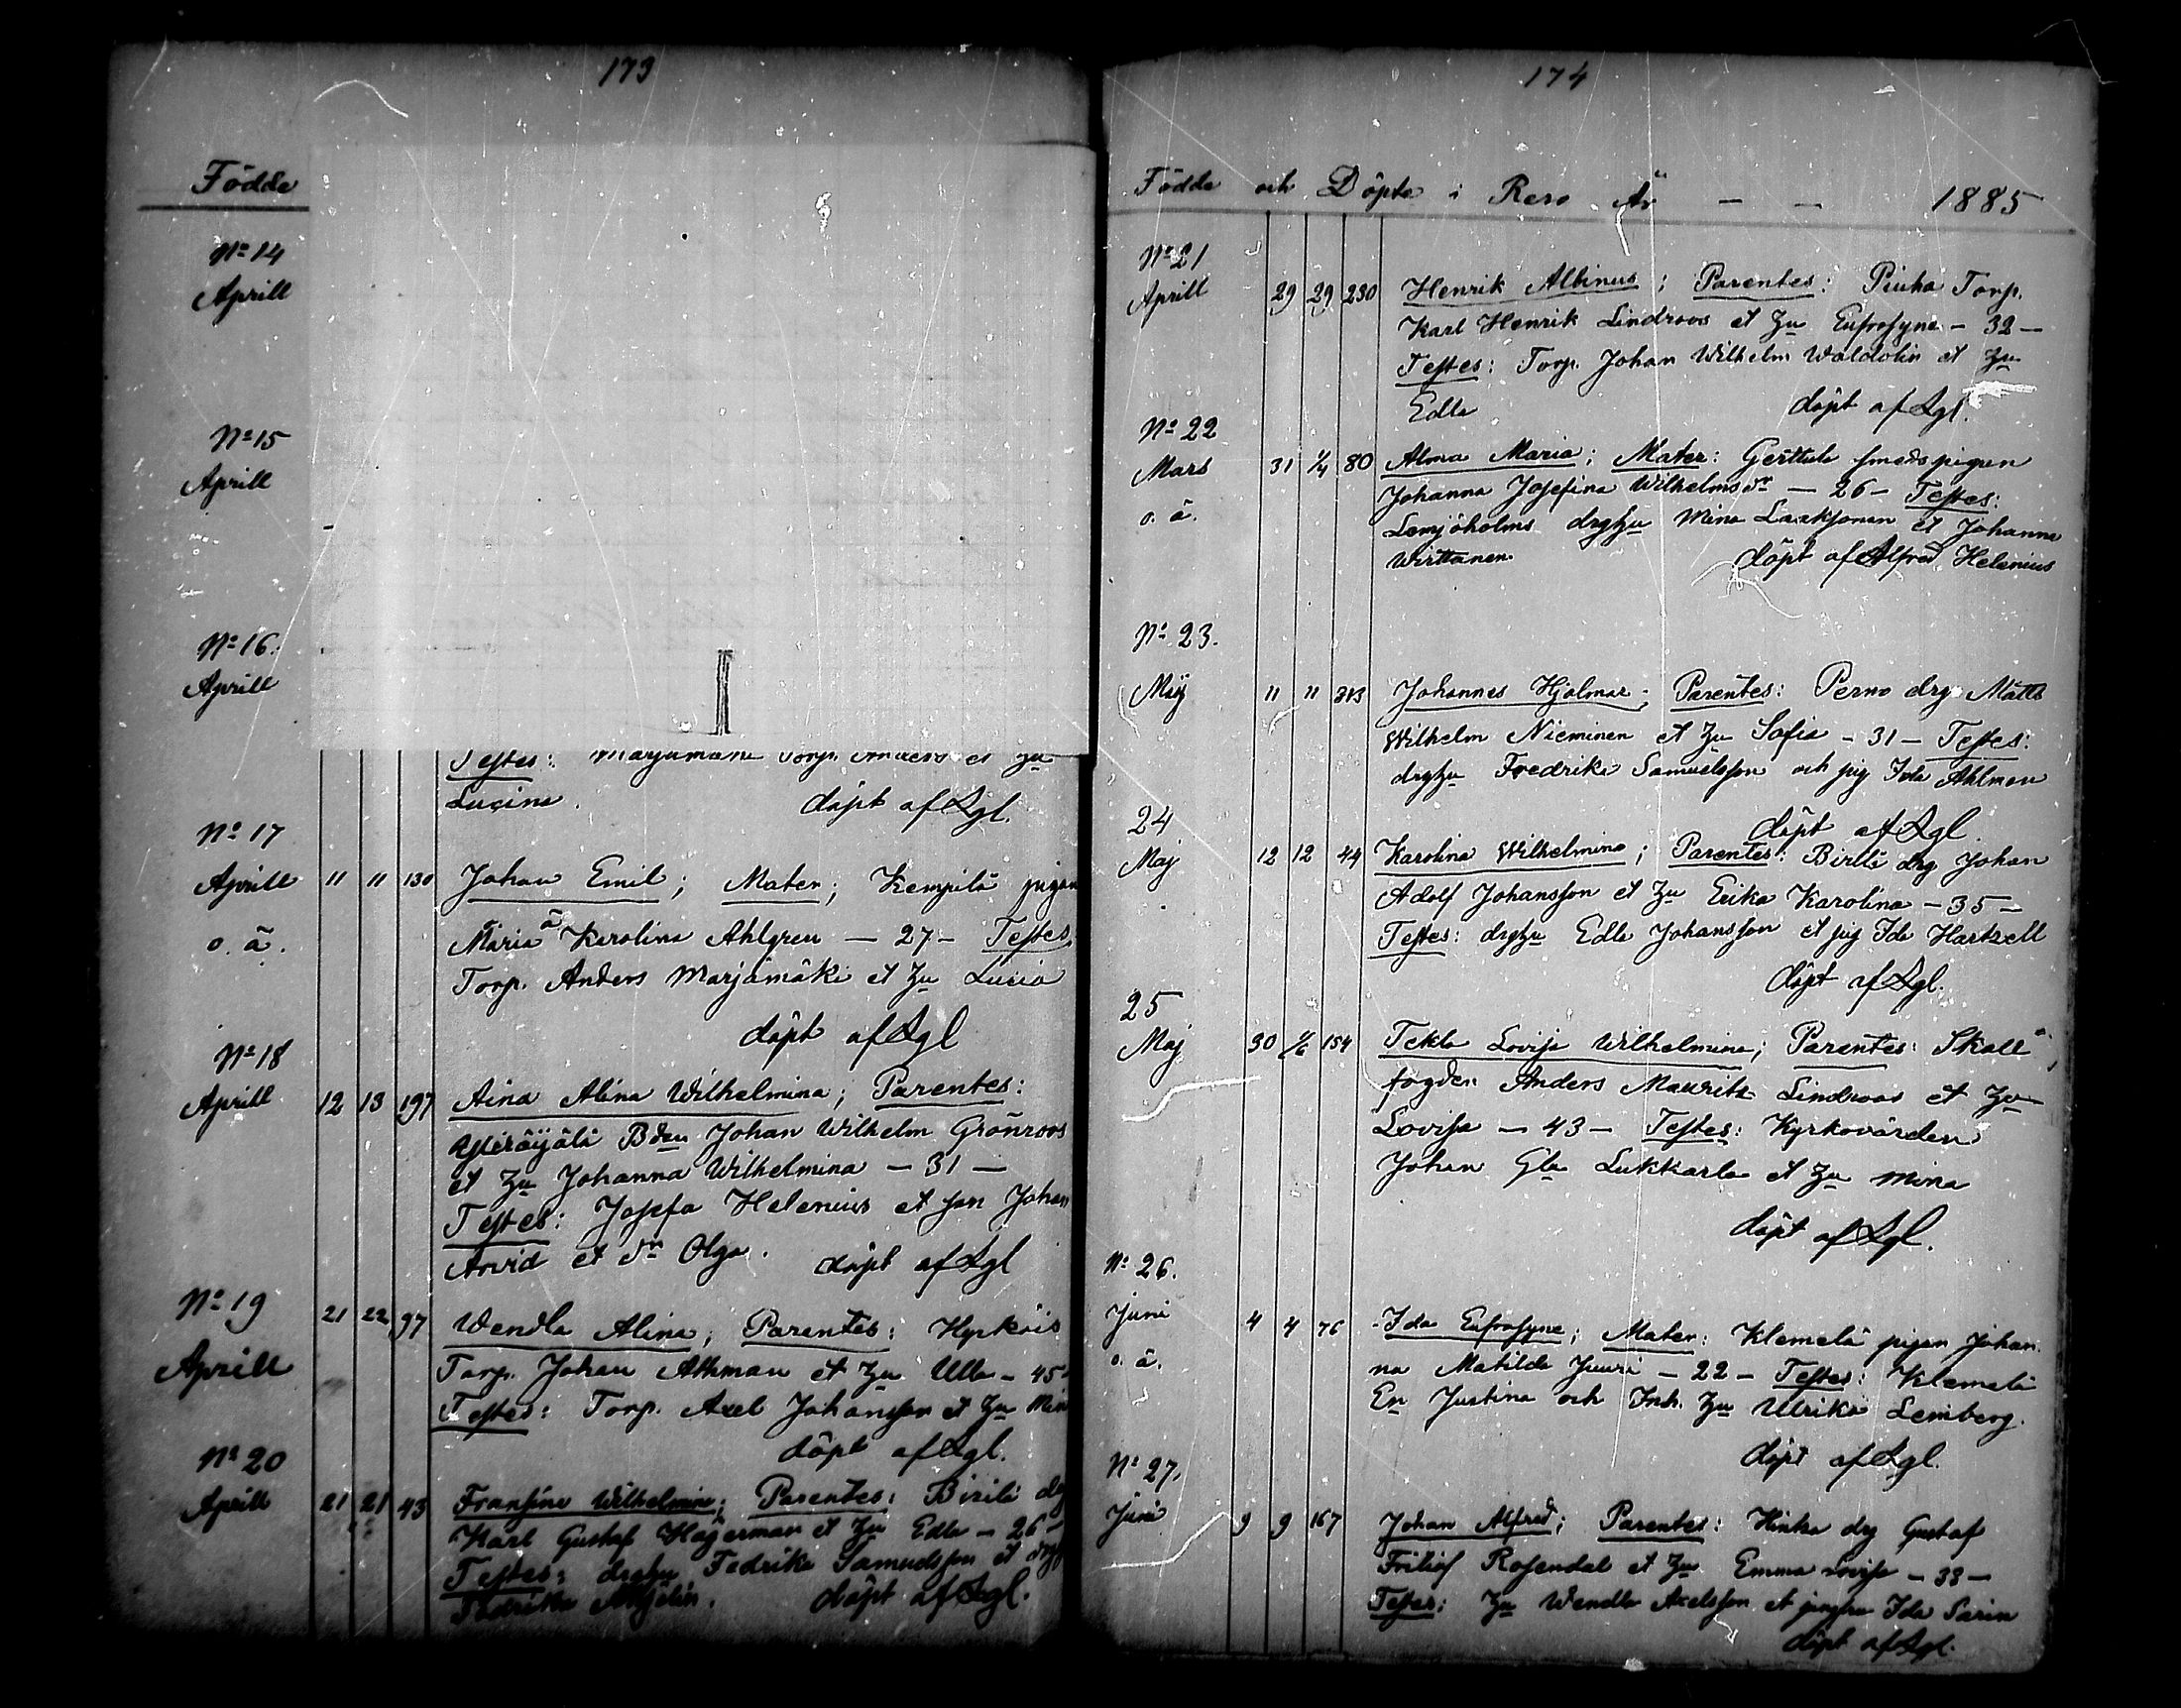 173
Födde
No 14
Aprill
No 15
Aprill
No 16.
Aprill
Testes: Marjamäki Torp. Anders et hu
Lucina. döpt af Lgl.
No 17
Aprill 11 11 130 Johan Emil; Mater; Kempilä pigan
o. ä. Maria Karolina Ahlgren — 27 — Testes
Torp. Anders Marjamäki et hu Lucia
döpt af Lgl
No 18
Aprill 12 13 197 Aina Alina Wilhelmina; Parentes:
Johan Wilhelm Grönroos
et hu Johanna Wilhelmina — 31 —
Testes: Josefa Helenius et son Johan
Arvid et dr Olga. döpt af Lgl
No 19
Aprill 21 22 97 Wendla Alina; Parentes: Hyrköis
Torp. Johan Athman et hu Ulla — 45 -
Testes: Torp. Axel Johansson et hu Min
döpt af Lgl.
No 20
Aprill 21 21 43 Fransina Wilhelmina; Parentes: Birilä drg
Karl Gustaf Hagerman et hu Edla — 26 —
Testes: drghu Fedrika Samuelsson et drgh
Fredrika döpt af Lgl.
174
Födde och Döpte i Reso År — — 1885
No 21
Aprill 29 29 230 Henrik Albinus; Parentes: Piuha Torp.
Karl Henrik Lindroos et hu Eufrosyne — 32 —
Testes: Torp. Johan Wilhelm Waldolin et hu
Edla döpt af Lgl.
No 22
Mars 31 1/4 80 Alma Maria; Mater: Gerttula smedspigan
o. ä. Johanna Josefina Wilhelmsdr — 26 — Testes:
Lemjöholms drghu Mina Laaksonen et Johanna
Wirttanen. döpt af Alfred Helenius
No 23.
Maj 11 11 313 Johannes Hjalmar; Parentes: Perno drg Matts
Wilhelm Nieminen et hu Sofia — 31 — Testes:
drghu Fredrika Samuelsson och pig Ida Ahlman
döpt af Lgl.
24
Maj 12 12 44 Karolina Wilhelmina; Parentes: Birilä drg Johan
Adolf Johansson et hu Erika Karolina — 35 —
Testes: drghu Edla Johansson et pig Ida Hartzell
döpt af Lgl.
25
Maj 30 1/6 154 Tekla Lovisa Wilhelmina; Parentes: Skall
fogden Anders Maurits Lindroos et hu
Lovisa — 43 — Testes: Kyrkovärden
Johan Gla Lukkarla et hu Mina
döpt af Lgl.
No 26.
Juni 4 4 76 Ida Eufrosyne; Mater: Klemelä pigan Johan
o. ä. na Matilda Juuri — 22 — Testes: Klemelä
En Justina och Inh. hu Ulrika Lemberg.
döpt af Lgl.
No 27.
Juni 9 9 167 Johan Alfred; Parentes: Hinka drg Gustaf
Fritiof Rosendal et hu Emma Lovisa — 33 —
Testes: hu Wendla Axelsson et jungfru Ida Sarin
döpt af Lgl.